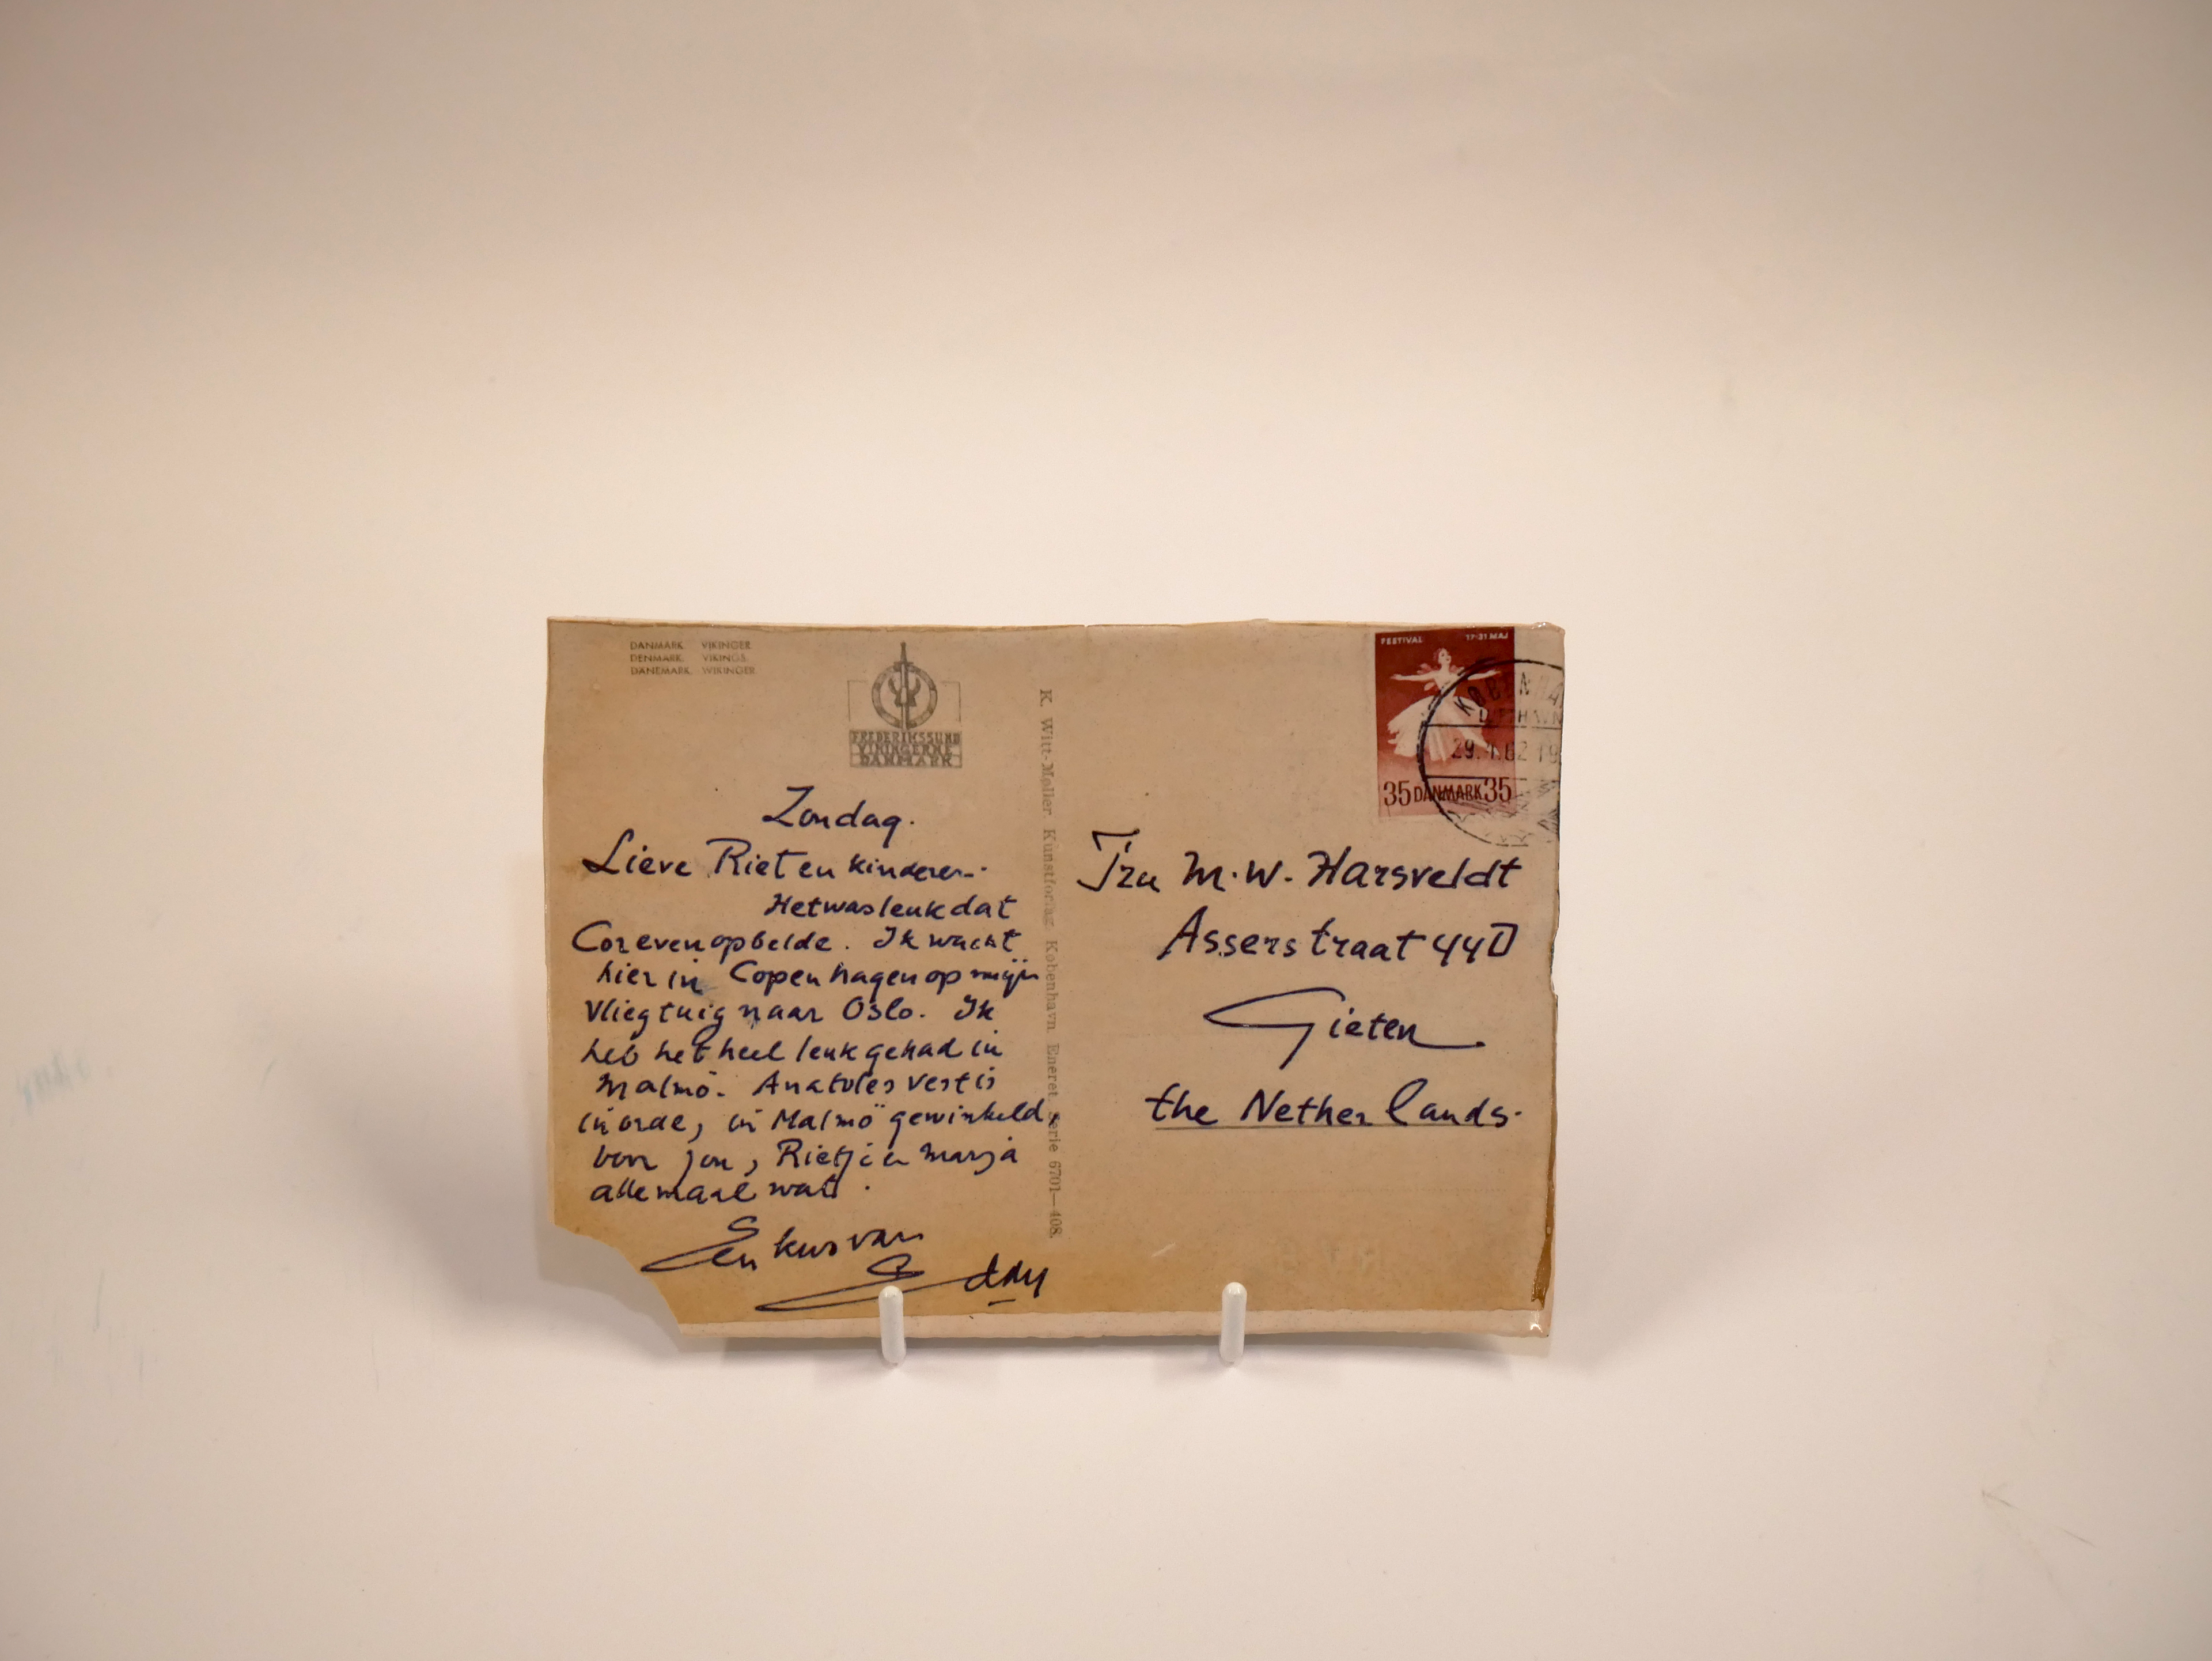 DANMARK. VIKINGER
DENMARK. VIKINGS.
DÄNEMARK. WIKINGER
FREDERIKSSUND
VIKINGERNE
DANMARK
Zondag.
Lieve Riet en kinderen.
Het was leuk dat
Cor even opbelde. Ik wacht
hier in Copenhagen op mijn
vliegtuig naar Oslo. Ik
heb het heel leuk gehad in
Malmö. Anatoles vest is
in orde, in Malmö gewinkeld,
voor jou, Rietje en Marja
allemaal wat.
Een kus van
Eddy
K. Witt-Møller. Kunstforlag København Eneret Serie 6701—408.
FESTIVAL 17-31 MAJ
35 DANMARK 35
KØBENHA
LUFTHAVN
29.4.62 19
M.W. Harsveldt
Asserstraat 44
Gieten
the Netherlands.